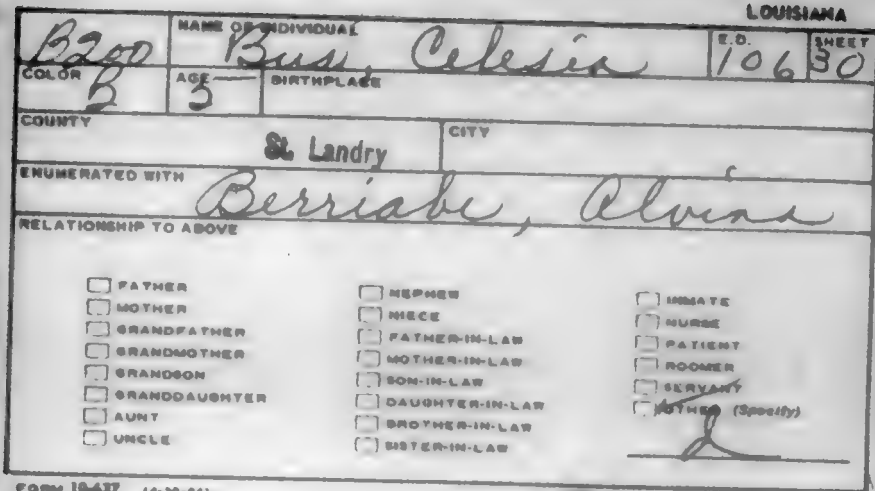 LOUISIANA
NAME OF INDIVIDUAL E.D. SHEET
B200 Bus, Celesia 106 30
COLOR AGE BIRTHPLACE
B 5
COUNTY CITY
St. Landry
ENUMERATED WITH
Berriabe, Alvina
RELATIONSHIP TO ABOVE
FATHER
MOTHER
GRANDFATHER
GRANDMOTHER
GRANDSON
GRANDDAUGHTER
AUNT
UNCLE
NEPHEW
NIECE
FATHER-IN-LAW
MOTHER-IN-LAW
SON-IN-LAW
DAUGHTER-IN-LAW
BROTHER-IN-LAW
SISTER-IN-LAW
INMATE
NURSE
PATIENT
ROOMER
SERVANT
OTHER (Specify)
d
FORM 10-637